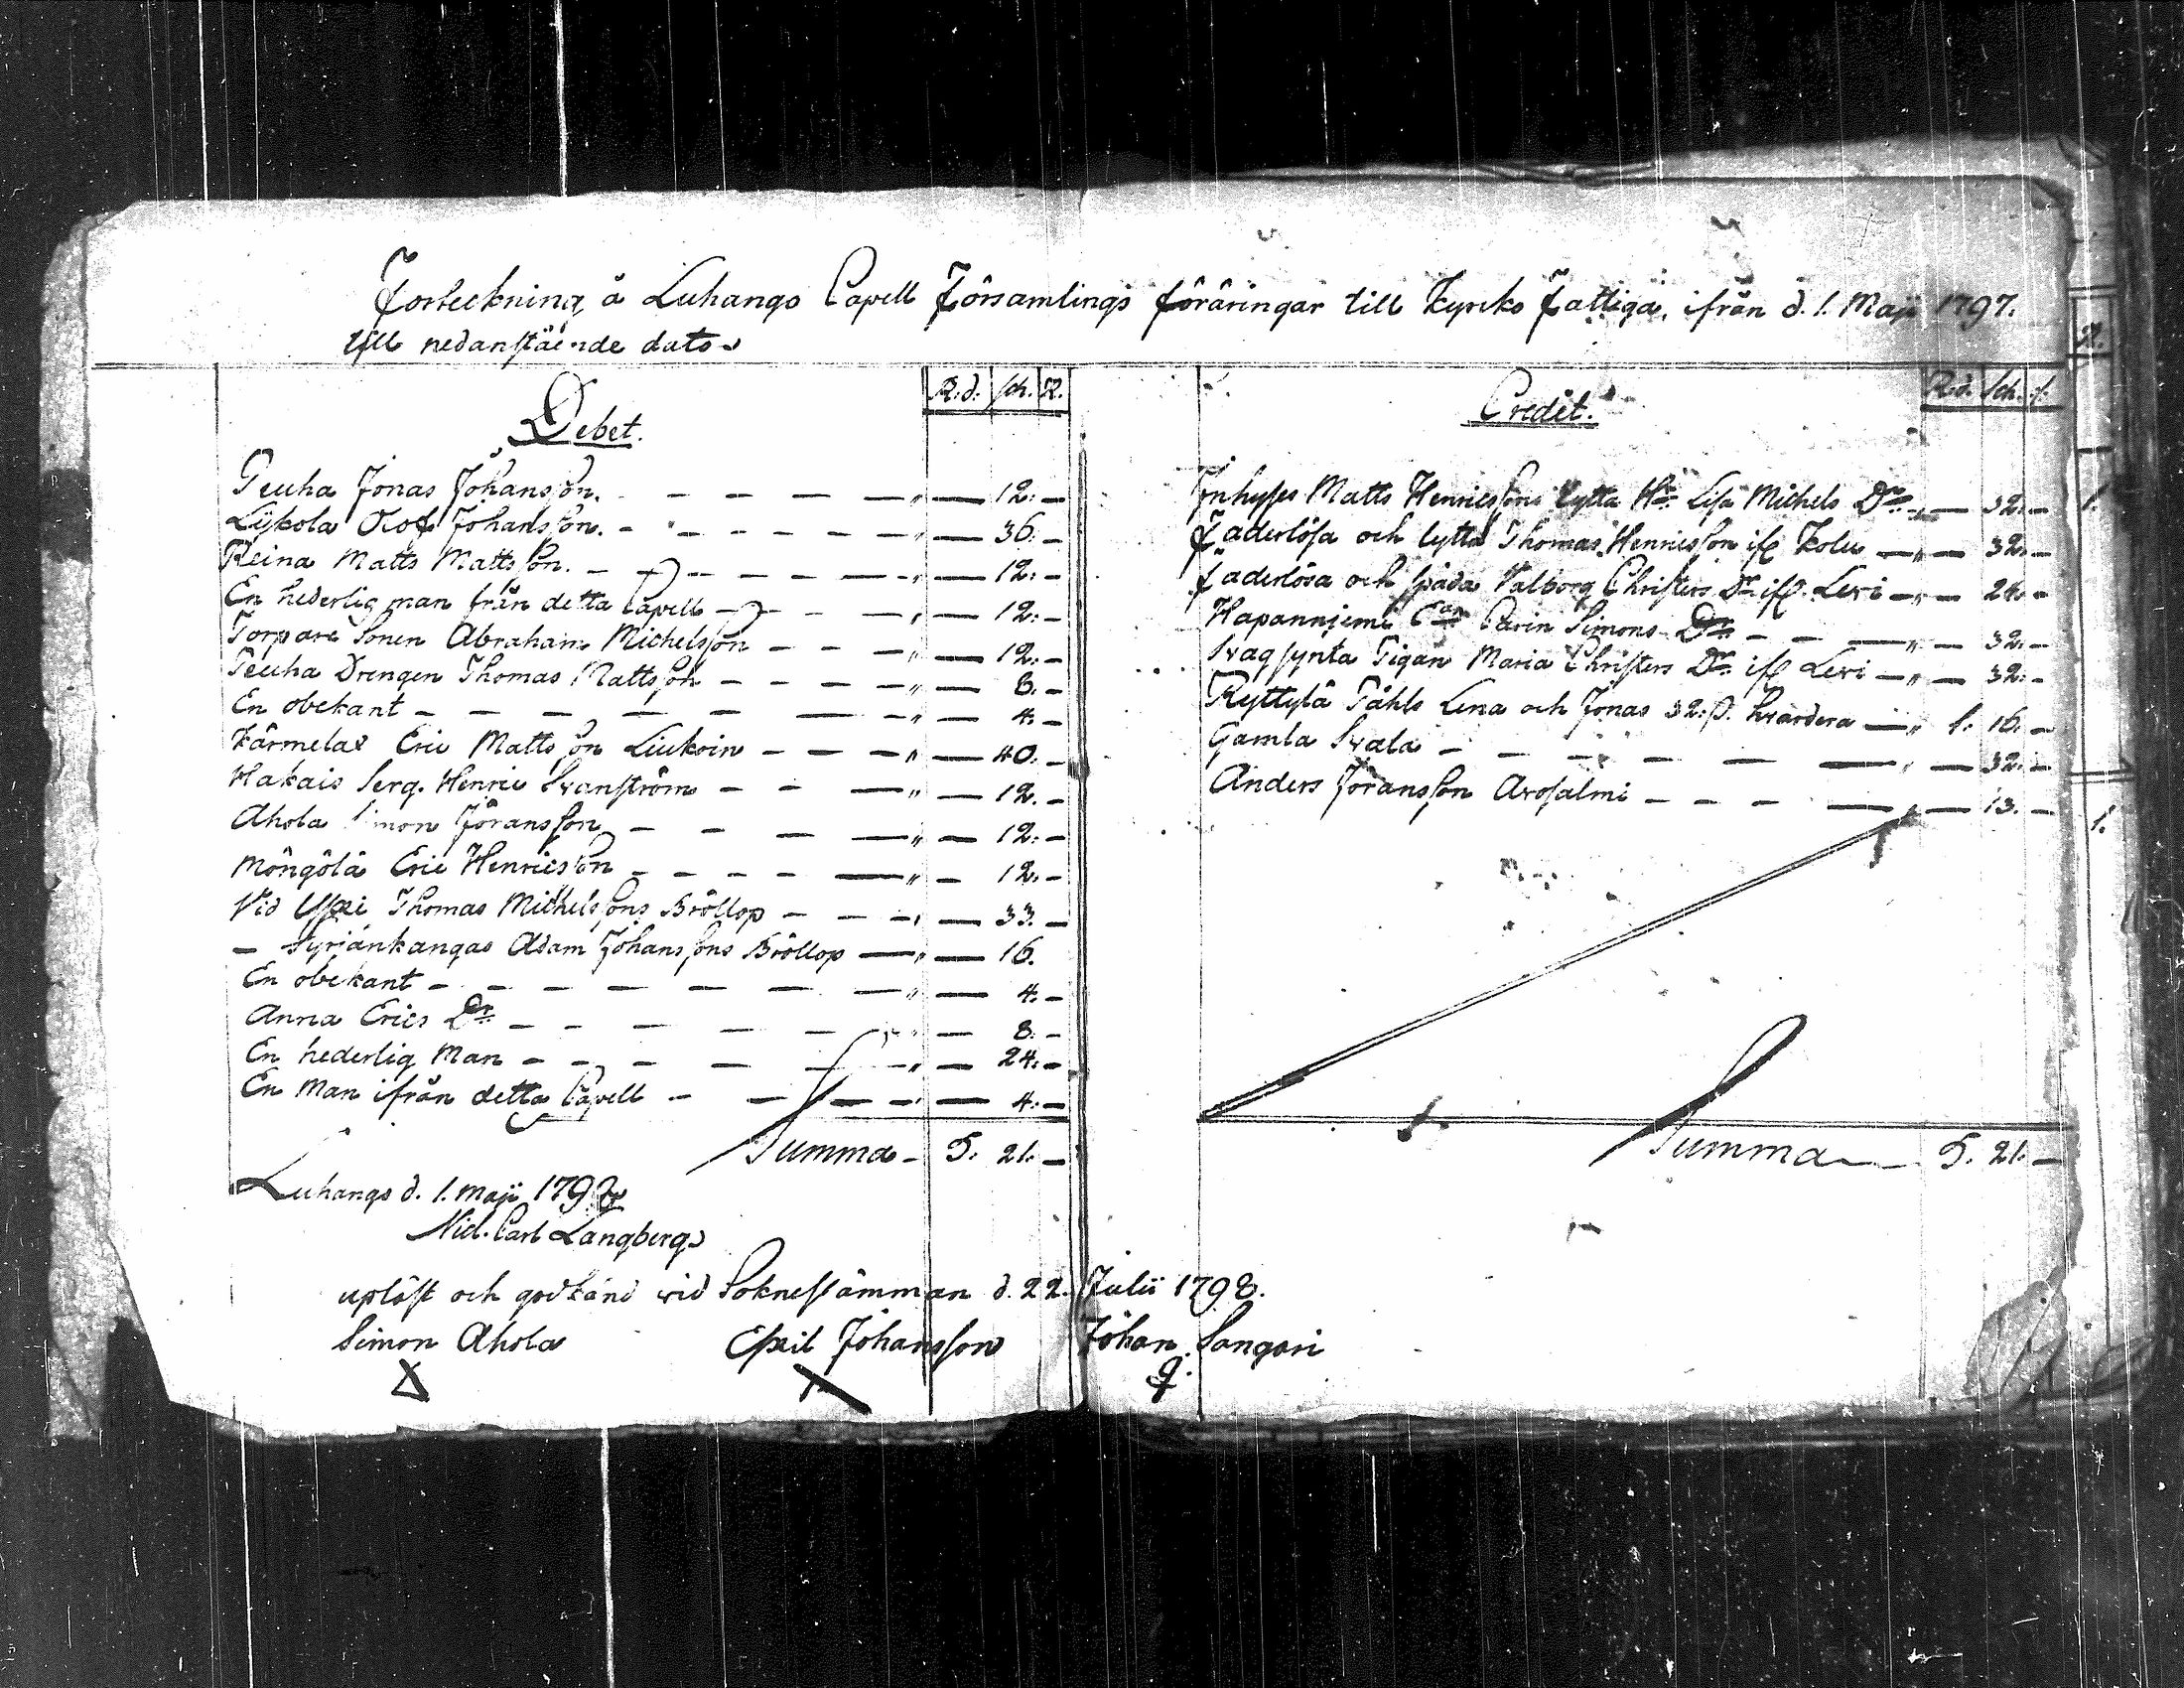 Förteckning å Luhango Capell Församlings föräringar till Kyrko Fattiga, ifrån d. 1. Maji 1797.
till nedanstående dato
R.d. sch. R.
Debet.
Peuha Jonas Johansson. — 12. —
Lykola Olof Johansson. — 36. —
Reina Matts Mattsson. — 12. —
En hederlig man från detta Capell — 12. —
Torpare Sonen Abraham Michelsson — 12. —
Peuha Drengen Thomas Mattsson — 8. —
En obekant — 4. —
Kärmelax Eric Mattsson Liukoin — 40. —
Hakais Serg. Henric Svanström — 12. —
Ahola Simon Jöransson — 12. —
Möngölä Eric Henricsson — 12. —
Vid Thomas Michelssons Bröllop — 33. —
— Syriänkangas Adam Johanssons Bröllop — 16.
En obekant — 4. —
Anna Erics Dr — 8. —
En hederlig Man — 24. —
En Man ifrån detta Capell — 4. —
Summa — 5. 21. —
Luhango d. 1. Maji 1798
Nid. Carl Langberg
Credit.
R.d. sch. r.
Inhyses Matts Henricssons lytta Hu Lisa Michels Dr — 32. —
Faderlösa och lytta Thomas Henricsson if. — 32. —
Faderlösa och späda Valborg Christers Dr if. Levi — 24. —
Hapanniemi Carin Simons Dr — 32. —
Svagsynta Pigan Maria Christers Dr if. Levi — 32. —
Ryttylä Påhls Lena och Jonas 32. s. hvardera — 1. 16. —
Gamla Svala — 32. —
Anders Jöransson Avosalmi — 13. —
Summa — 5. 21. —
upläst och godkänd vid Soknestämman d. 22. Julii 1798.
Simon Ahola Eskil Johansson Johan Sangari